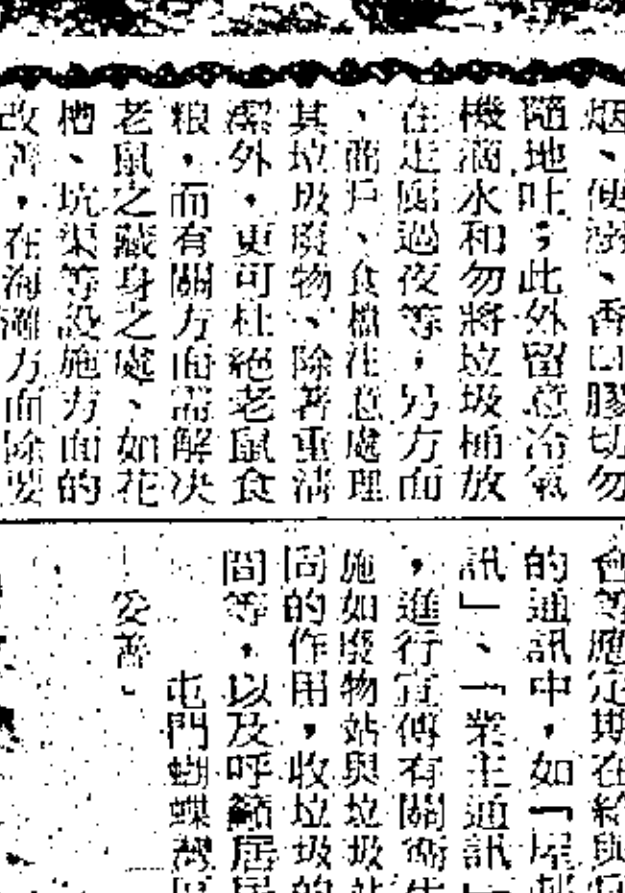 烟、便溺、香口膠切勿
隨地吐；此外留意冷氣
機滴水和勿將垃圾桶放
在走廊過夜等，另方面
、商戶、食檔注意處理
其垃圾廢物、除著重清
潔外，更可杜絕老鼠食
粮，而有關方面需解决
老鼠之藏身之處、如花
槽、坑渠等設施方面的
改善，在海灘方面除要
會等應定期在給與
的通訊中，如「屋邨
訊」、「業主通訊」
，進行宣傳有關衛生
施如廢物站與垃圾站
同的作用，收垃圾的
間等，以及呼籲居
屯門蝴蝶灣